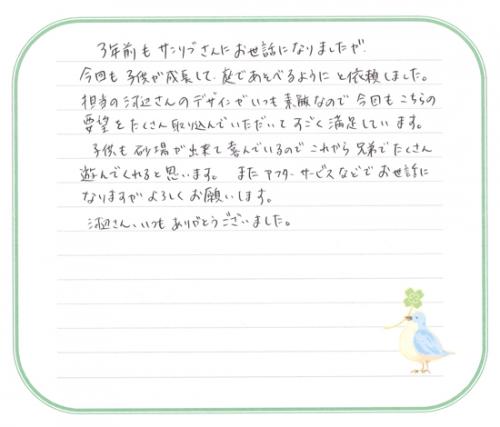 3年前も サンリブさんにお世話になりましたが、
今回も 子供が成長して、庭であそべるように と依頼しました。
担当の 河辺さんの デザインが いつも 素敵なので 今回も こちらの
要望を たくさん 取り込んでいただいて すごく 満足しています。
子供も 砂場が 出来て 喜んでいるので これから 兄弟で たくさん
遊んでくれると 思います。 また アフターサービスなどで お世話に
なりますが よろしく お願いします。
河辺さん、いつも ありがとうございました。